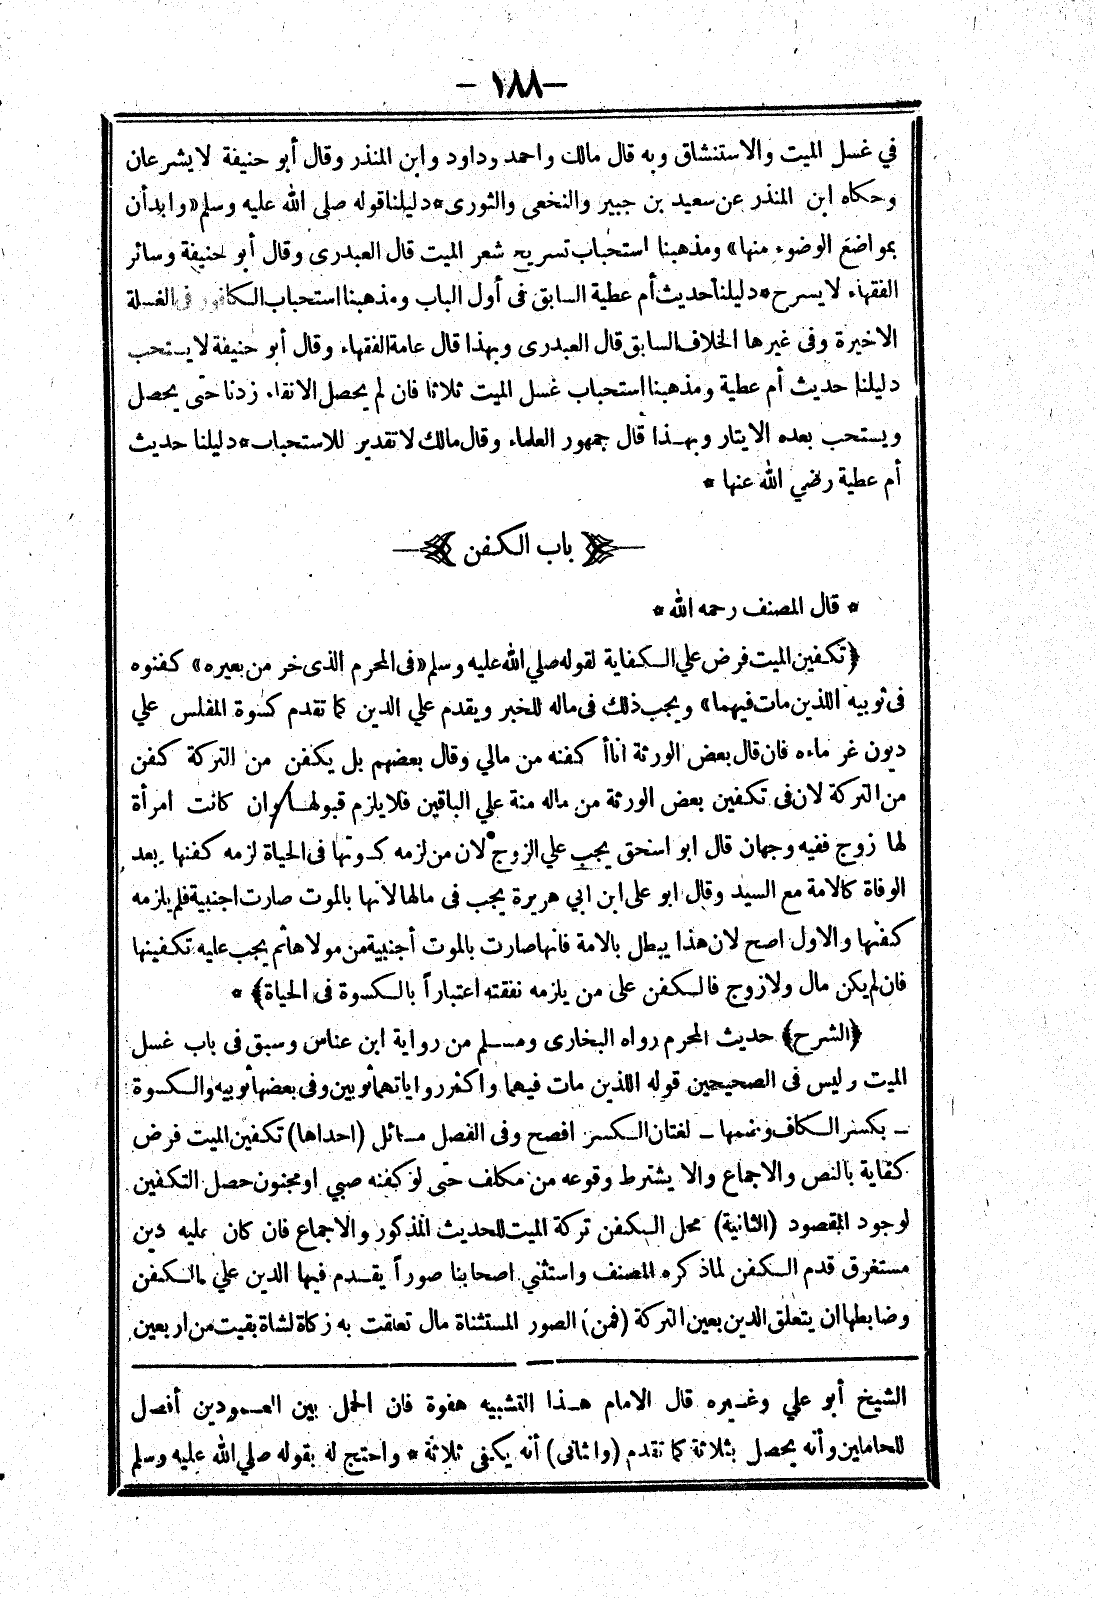 — ١٨٨ —
في غسل الميت والاستنشاق وبه قال مالك واحمد وداود وابن المنذر وقال أبو حنيفة لا يشرعان
وحكاه ابن المنذر عن سعيد بن جبير والنخعى والثورى * دليلنا قوله صلى الله عليه وسلم «وابدأن
بمواضع الوضوء منها» ومذهبنا استحباب تسريح شعر الميت قال العبدرى وقال أبو حنيفة وسائر
الفقهاء لا يسرح * دليلنا حديث أم عطية السابق فى أول الباب ومذهبنا استحباب الكافور فى الغسلة
الاخيرة وفى غيرها الخلاف السابق قال العبدرى وبهذا قال عامة الفقهاء وقال أبو حنيفة لا يستحب
دليلنا حديث أم عطية ومذهبنا استحباب غسل الميت ثلاثا فان لم يحصل الانقاء زدنا حتى يحصل
ويستحب بعده الايتار وبهذا قال جمهور العلماء وقال مالك لا تقدير للاستحباب * دليلنا حديث
أم عطية رضي الله عنها *
باب الكفن
* قال المصنف رحمه الله *
﴿تكفين الميت فرض علي الكفاية لقوله صلي الله عليه وسلم «فى المحرم الذى خر من بعيره» كفنوه
فى ثوبيه اللذين مات فيهما» ويجب ذلك فى ماله للخبر ويقدم علي الدين كما تقدم كسوة المفلس علي
ديون غرماءه فان قال بعض الورثة انا أكفنه من مالي وقال بعضهم بل يكفن من التركة كفن
من التركة لان فى تكفين بعض الورثة من ماله منة علي الباقين فلا يلزم قبولها وان كانت امرأة
لها زوج ففيه وجهان قال ابو اسحق يجب علي الزوج لان من لزمه كسوتها فى الحياة لزمه كفنها بعد
الوفاة كالامة مع السيد وقال ابو على ابن ابي هريرة يجب فى مالها لانها بالموت صارت اجنبية فلم يلزمه
كفنها والاول اصح لان هذا يبطل بالامة فانها صارت بالموت أجنبية من مولاها ثم يجب عليه تكفينها
فان لم يكن مال ولا زوج فالكفن على من يلزمه نفقته اعتباراً بالكسوة فى الحياة﴾ *
﴿الشرح﴾ حديث المحرم رواه البخارى ومسلم من رواية ابن عباس وسبق فى باب غسل
الميت وليس فى الصحيحين قوله اللذين مات فيهما واكثر رواياتهما ثوبين وفى بعضها ثوبيه والكسوة
ـ بكسر الكاف وضمها ـ لغتان الكسر افصح وفى الفصل مسائل (احداها) تكفين الميت فرض
كفاية بالنص والاجماع والا يشترط وقوعه من مكلف حتى لو كفنه صبي او مجنون حصل التكفين
لوجود المقصود (الثانية) محل الكفن تركة الميت للحديث المذكور والاجماع فان كان عليه دين
مستغرق قدم الكفن لما ذكره المصنف واستثني اصحابنا صوراً يقدم فيها الدين علي الكفن
وضابطها ان يتعلق الدين بعين التركة (فمن) الصور المستثناة مال تعلقت به زكاة لشاة بقيت من اربعين
الشيخ أبو علي وغيره قال الامام هذا التشبيه هفوة فان الحمل بين العمودين أفضل
للحاملين وأنه يحصل بثلاثة كما تقدم (واثانى) أنه يكفى ثلاثة * واحتج له بقوله صلي الله عليه وسلم